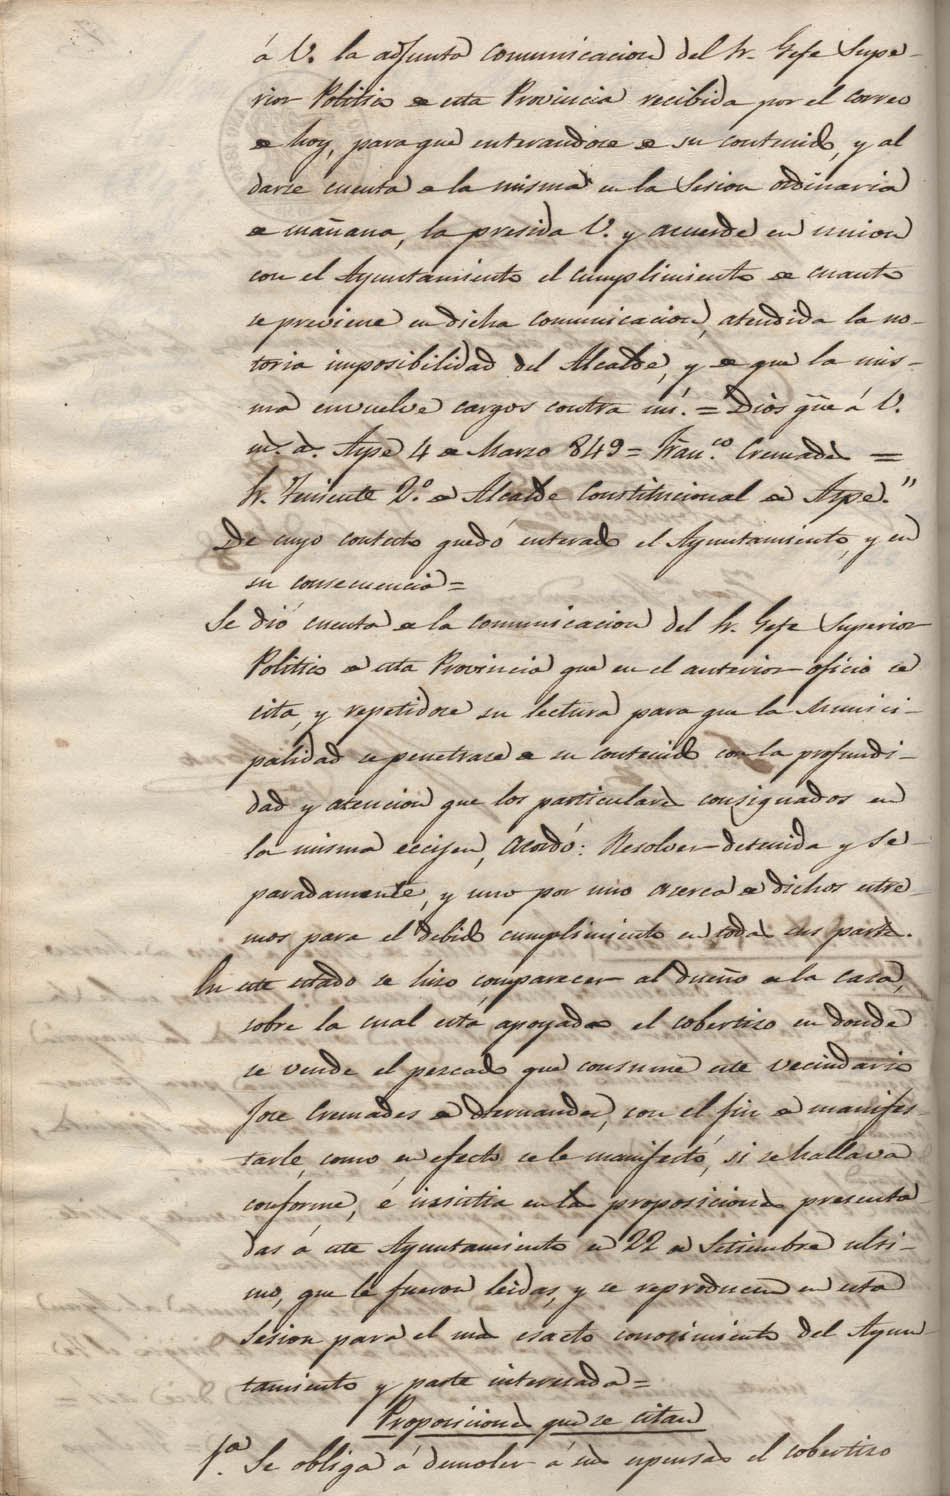 á V. la adjunta comunicacion del Sr. Gefe Supe-
rior Politico de esta Provincia recibida por el correo
de hoy, para que enterandose de su contenido, y al
darse cuenta de la misma en la Sesion ordinaria
de mañana, la presida V. y acuerde en union
con el Ayuntamiento el cumplimiento de cuanto
se previene en dicha comunicacion, atendida la no-
toria imposibilidad del Alcalde, y de que la mis-
ma envuelve cargos contra mí. = Dios gũe á V.
m.s a.s Aspe 4 de Marzo 849 = Fran.co Cremades =
Sr. Teniente 2.o de Alcalde Constitucional de Aspe."
De cuyo contesto quedó enterado el Ayuntamiento, y en
su consecuencia =
Se dió cuenta de la comunicacion del Sr. Gefe Superior
Politico de esta Provincia que en el anterior oficio se
cita, y repetidose su lectura para que la Munici-
palidad se penetrase de su contenido con la profundi-
dad y atencion que los particulares consignados en
la misma eccijen, Acordó: Resolver detenida y se-
paradamente, y uno por uno acerca de dichos estre-
mos para el debido cumplimiento en todas sus partes.
En este estado se hizo comparecer al dueño de la casa,
sobre la cual está apoyado el cobertizo en donde
se vende el pescado que consume este vecindario
Jose Cremades de Hernandez, con el fin de manifes-
tarle, como en efecto se le manifestó, si se hallava
conforme, é insistia en las proposiciones presenta
das á este Ayuntamiento en 22 de Setiembre ulti-
mo, que le fueron leidas, y se reproducen en esta
Sesion para el mas esacto conocimiento del Ayun-
tamiento y parte interesada =
Proposiciones que se citan
1.a Se obliga á demoler á sus espensas el cobertizo